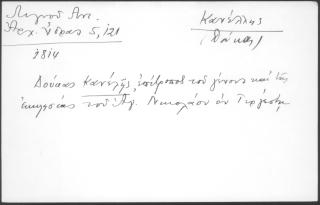 Λιγνοῦ Αντ.
Ἀρχ. Ὕδρας 5, 121
Κανέλλης
(Δούκας)
1814
Δούκας Κανέλης, ἐπίτροπος τοῦ γένους καὶ τῆς
ἐκκλησίας τοῦ Ἁγ. Νικολάου ἐν Τεργέστῃ